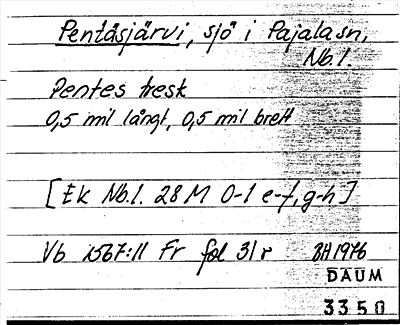 Pentäsjärvi, sjö i Pajala sn,
Nb.l.
Pentes tresk
0,5 mil långt, 0,5 mil brett
[Ek Nb.l. 28 M 0-1 e-f, g-h]
Vb 1567:11 Fr fol 31 r BH 1976
DAUM
3350